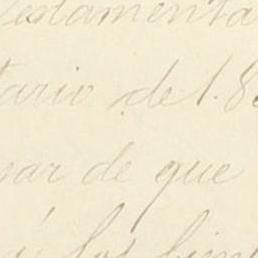 testamenta
tario de 1.8
sar de que
á los bien